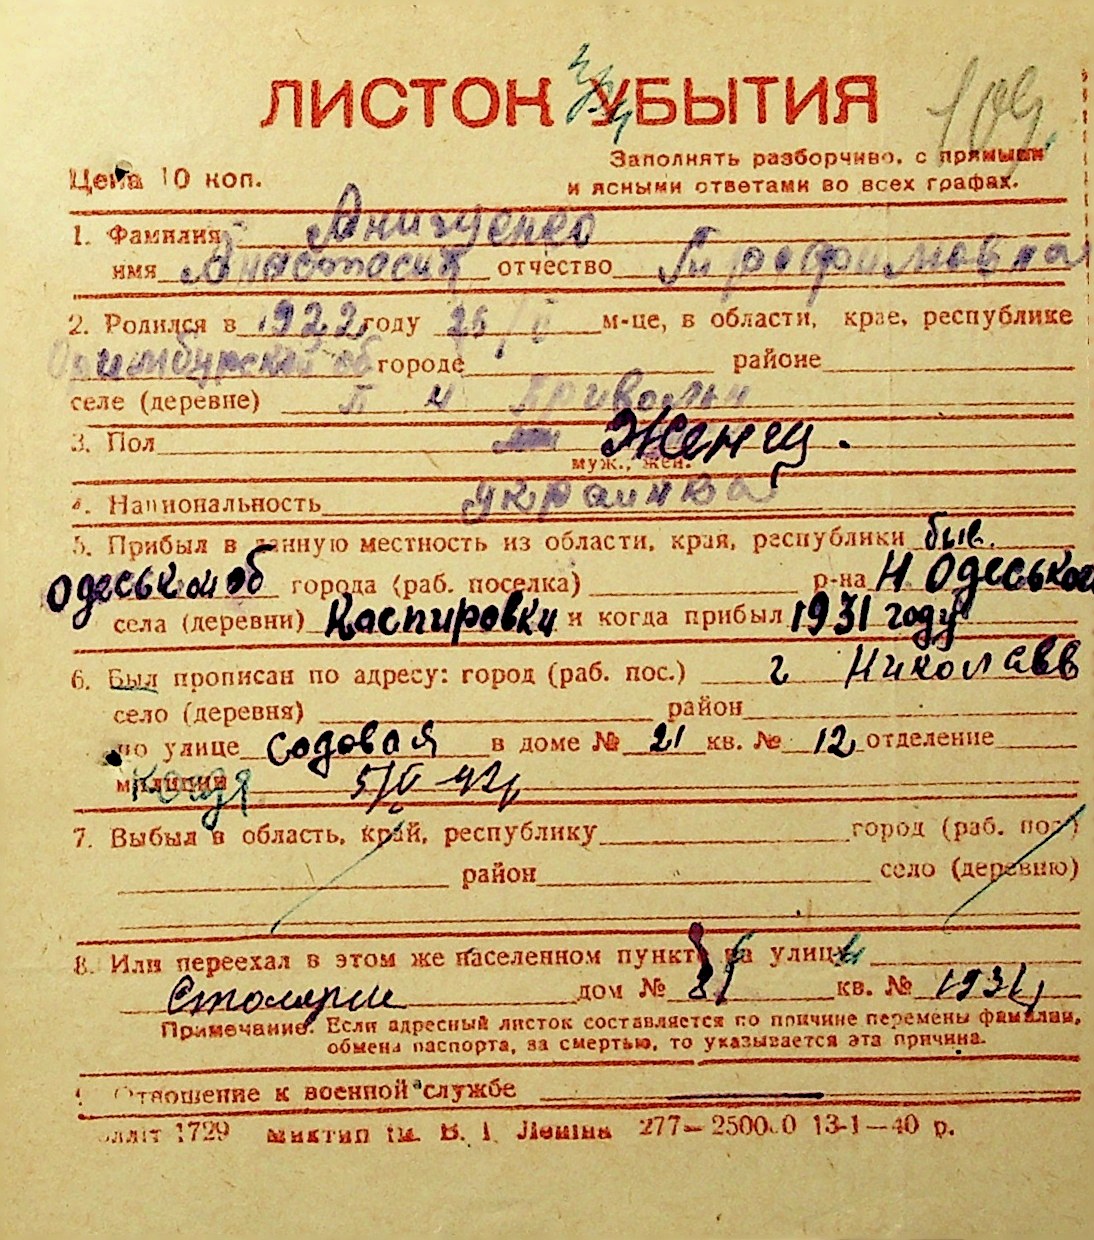 ЛИСТОК УБЫТИЯ
109.
Цена 10 коп.
Заполнять разборчиво, с прямыми
и ясными ответами во всех графах.
1. Фамилия Анищенко
имя Анастасия отчество Трофимовна
2. Родился в 1922 году 26/ м-це, в области, крае, республике
об городе районе
селе (деревне)
3. Пол Женщ.
муж., жен.
4. Национальность украинка
5. Прибыл в данную местность из области, края, республики быв.
Одеськой об города (раб. поселка) р-на Н Одеського
села (деревни) Каспировки и когда прибыл 1931 году
6. Был прописан по адресу: город (раб. пос.) г Николаев
село (деревня) район
по улице Садовая в доме № 21 кв. № 12 отделение
милиции когда
7. Выбыл в область, край, республику город (раб. пос.)
район село (деревню)
8. Или переехал в этом же населенном пункте на улицу
дом № кв. №
Примечание. Если адресный листок составляется по причине перемены фамилии,
обмена паспорта, за смертью, то указывается эта причина.
Отношение к военной службе
1729 им. В. І. Леніна 277—25000 13-1—40 р.